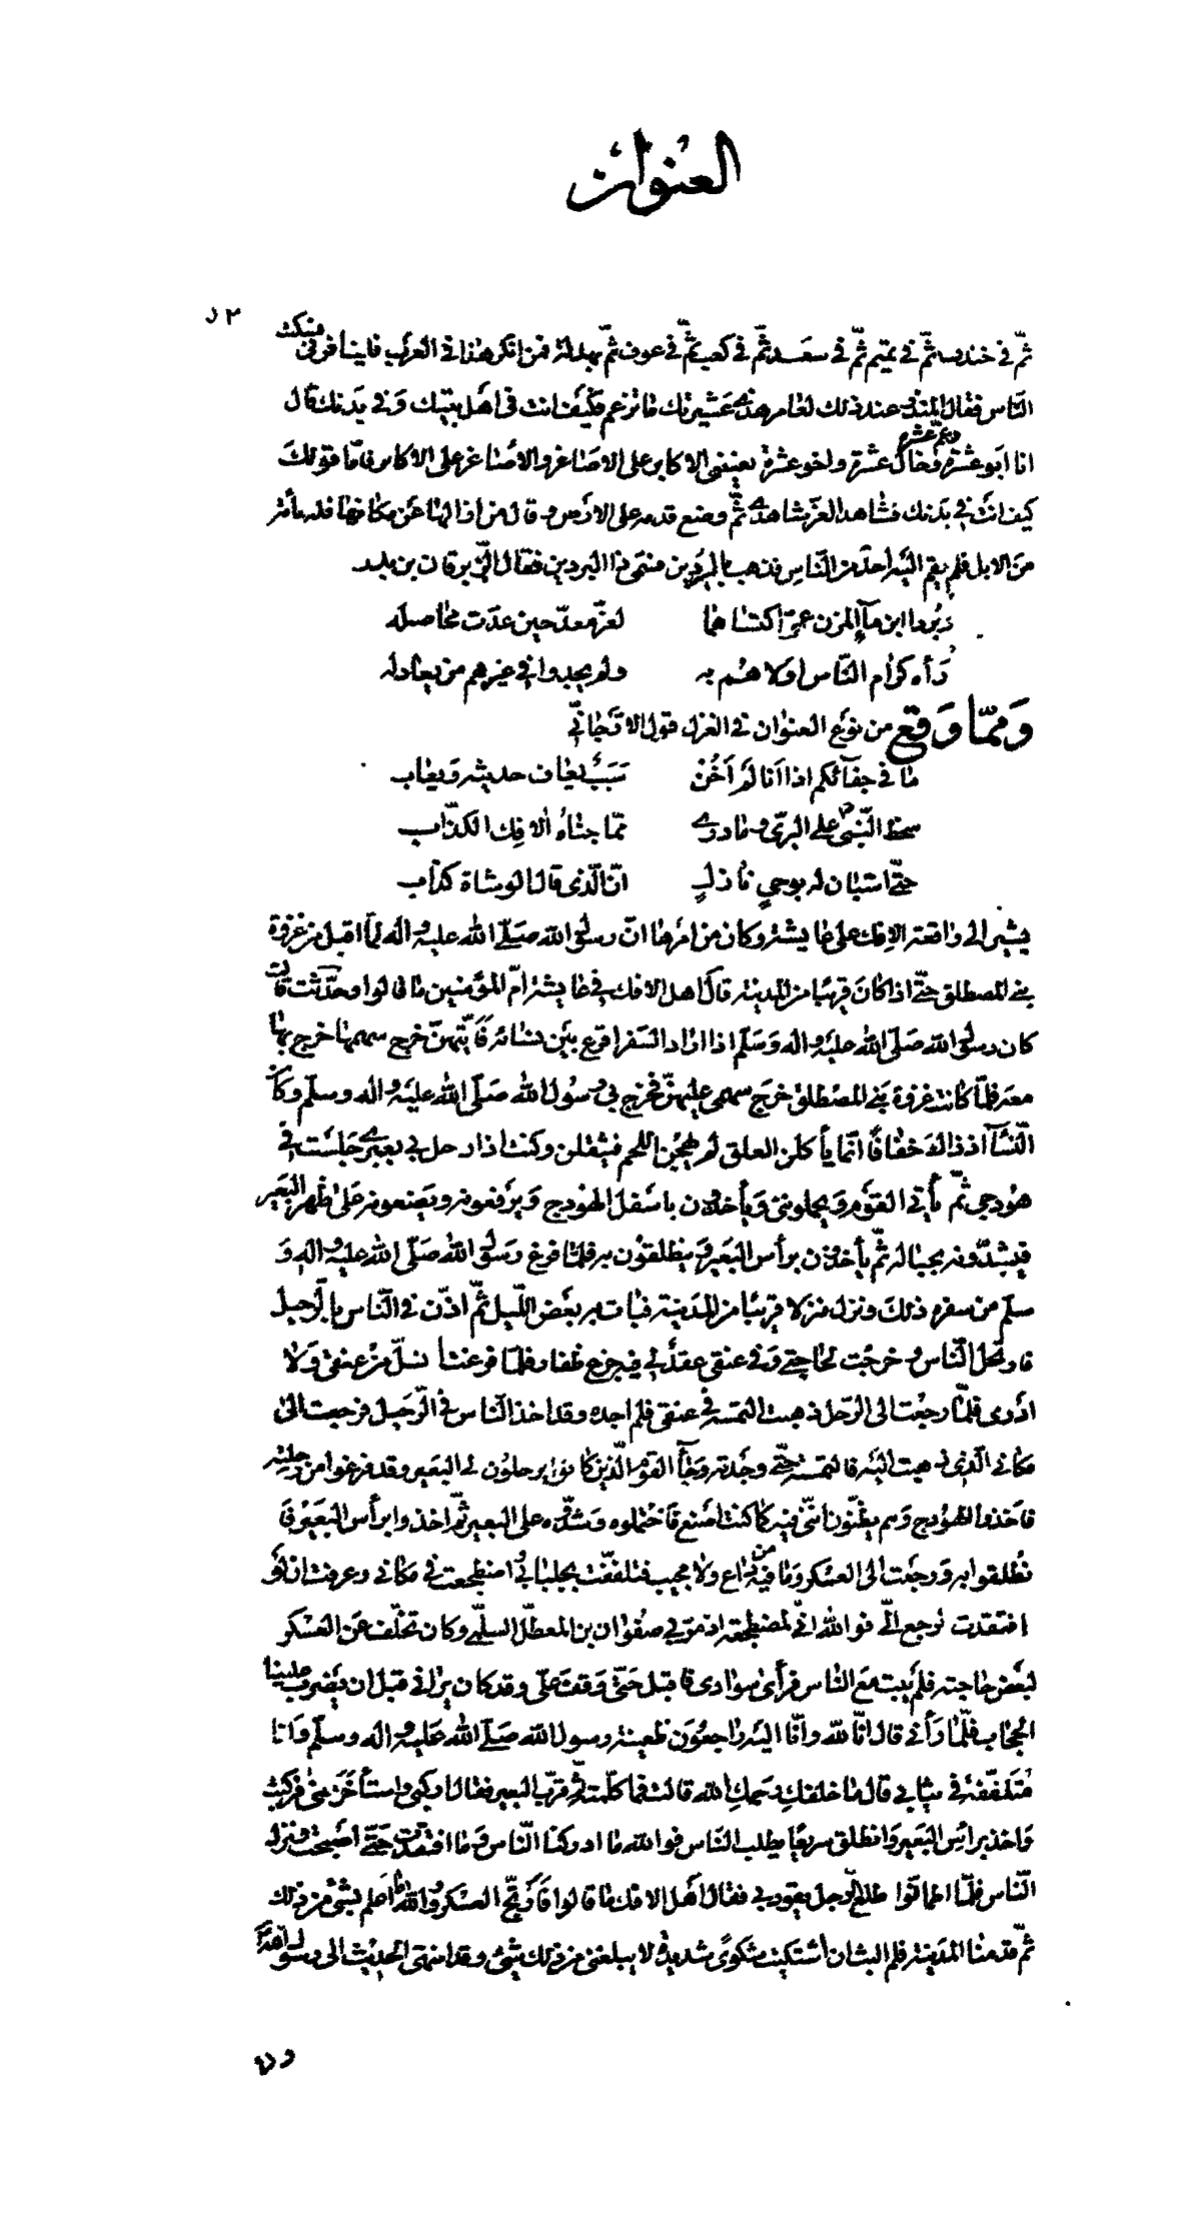 العنوان
ثم في خندف ثم في تميم ثم في سعد ثم في كعب ثم في عوف ثم بهدلة فمن انكر هذا في العرب فلينافرني فسكت
الناس فقال المنذر عند ذلك لعامر هذه عشيرتك كما تزعم فكيف انت في اهل بيتك وفي بدنك قال
انا ابو عشرة وعم عشرة وخال عشرة واخو عشرة يعينني الاكابر على الاصاغر والاصاغر على الاكابر فاما قولك
كيف انت في بدنك فشاهد العز شاهدي ثم وضع قدمه على الارض وقال من ازالها عن مكانها فله مأئة
من الابل فلم يقم اليه احد من الناس فذهب بالبردين فسمى ذا البردين فقال الزبرقان بن بدر
بردا ابن مآء المزن عمي اكتساهما لعز معد حين عدت محاصله
رآه كرام الناس اولاهم به ولم يجدوا في غيرهم من يعادله
ومما وقع من نوع العنوان في الغزل قول الارجاني
ما في جفائكم اذا انا لم اخن سبب يعاف حديثه ويعاب
سخط النبي على البري وما درى مما جناه الافك الكذاب
حتى استبان له بوحي نازل ان الذي قال الوشاة كذاب
يشير الى واقعة الافك على عايشة وكان من امرها ان رسول الله صلى الله عليه واله لما اقبل من غزوة
بني المصطلق حتى اذا كان قريبا من المدينة قال اهل الافك في عايشة ام المؤمنين ما قالوا وحدثت قالت
كان رسول الله صلى الله عليه واله وسلم اذا اراد السفر اقرع بين نسائه فأيتهن خرج سهمها خرج بها
معه فلما كانت غزوة بني المصطلق خرج سهمي عليهن فخرج بي رسول الله صلى الله عليه واله وسلم وكان
النسآء اذ ذاك خفافا انما يأكلن العلق لم يهجن اللحم فيثقلن وكنت اذا رحل لي بعيري جلست في
هودجي ثم يأتي القوم ويحملونني ويأخذون باسفل الهودج ويرفعونه ويضعونه على ظهر البعير
فيشدونه بحباله ثم يأخذون برأس البعير فينطلقون به فلما فرغ رسول الله صلى الله عليه واله و
سلم من سفره ذلك ونزل منزلا قريبا من المدينة فبات به بعض الليل ثم اذن في الناس بالرحيل
فارتحل الناس وخرجت لحاجتي وفي عنقي عقد لي فيه جزع ظفار فلما فرغت انسل من عنقي ولا
ادري فلما رجعت الى الرحل ذهبت التمسه في عنقي فلم اجده وقد اخذ الناس في الرحيل فرجعت الى
مكاني الذي ذهبت اليه فالتمسته حتى وجدته وجآء القوم الذين كانوا يرحلون لي البعير وقد فرغوا من رحلته
فاخذوا الهودج وهم يظنون انني فيه كما كنت اصنع فاحتملوه وشدوه على البعير ثم اخذوا برأس البعير فا
نطلقوا به ورجعت الى العسكر وما فيه من داع ولا مجيب فتلففت بجلبابي اضطجعت في مكاني وعرفت ان لو
افتقدت لرجع الي فو الله اني لمضطجعة اذ مر بي صفوان بن المعطل السلمي وكان تخلف عن العسكر
لبعض حاجته فلم يبت مع الناس فرأى سوادي فاقبل حتى وقف علي وقد كان يراني قبل ان يضرب علينا
الحجاب فلما رأني قال انا لله وانا اليه راجعون ظعينة رسول الله صلى الله عليه واله وسلم وانا
متلففة في ثيابي قال ما خلفك رحمك الله قالت فما كلمته ثم قرب البعير فقال اركبي واستأخر عني فركبت
واخذ برأس البعير وانطلق سريعا يطلب الناس فوالله ما ادركنا الناس وما افتقدت حتى اصبحت ونزل
الناس فلما اطمانوا طلع الرجل يقود بي فقال اهل الافك ما قالوا فارتج العسكر والله ما اعلم بشئ من ذلك
ثم قدمنا المدينة فلم البث ان اشتكيت شكوى شديدة لا يبلغني من ذلك شئ وقد انتهى الحديث الى رسول الله